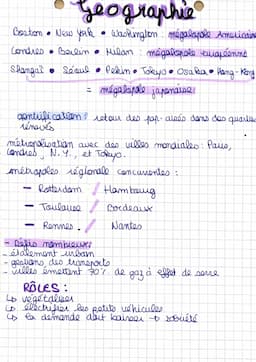 Geographie
Boston • New York • Washington : mégalopole Américaine
Londres • Berlin • Milan : mégalopole européenne
Shangaï • Séoul • Pékin • Tokyo • Osaka • Hong-Kong
= mégalopole japonaise
gentrification : retour des pop. aisés dans des quartiers
rénovés
métropolisation avec des villes mondiales : Paris,
Londres, N.Y., et Tokyo.
métropoles régionale concurrentes :
– Rotterdam / Hambourg
– Toulouse / Bordeaux
– Rennes / Nantes
- Défis nombreux :
- étalement urbain
- gestions des transports
- villes émettent 70% de gaz à effet de serre
RÔLES :
↳ végétaliser
↳ électrifier les petits véhicules
↳ la demande doit baisser → sobriété